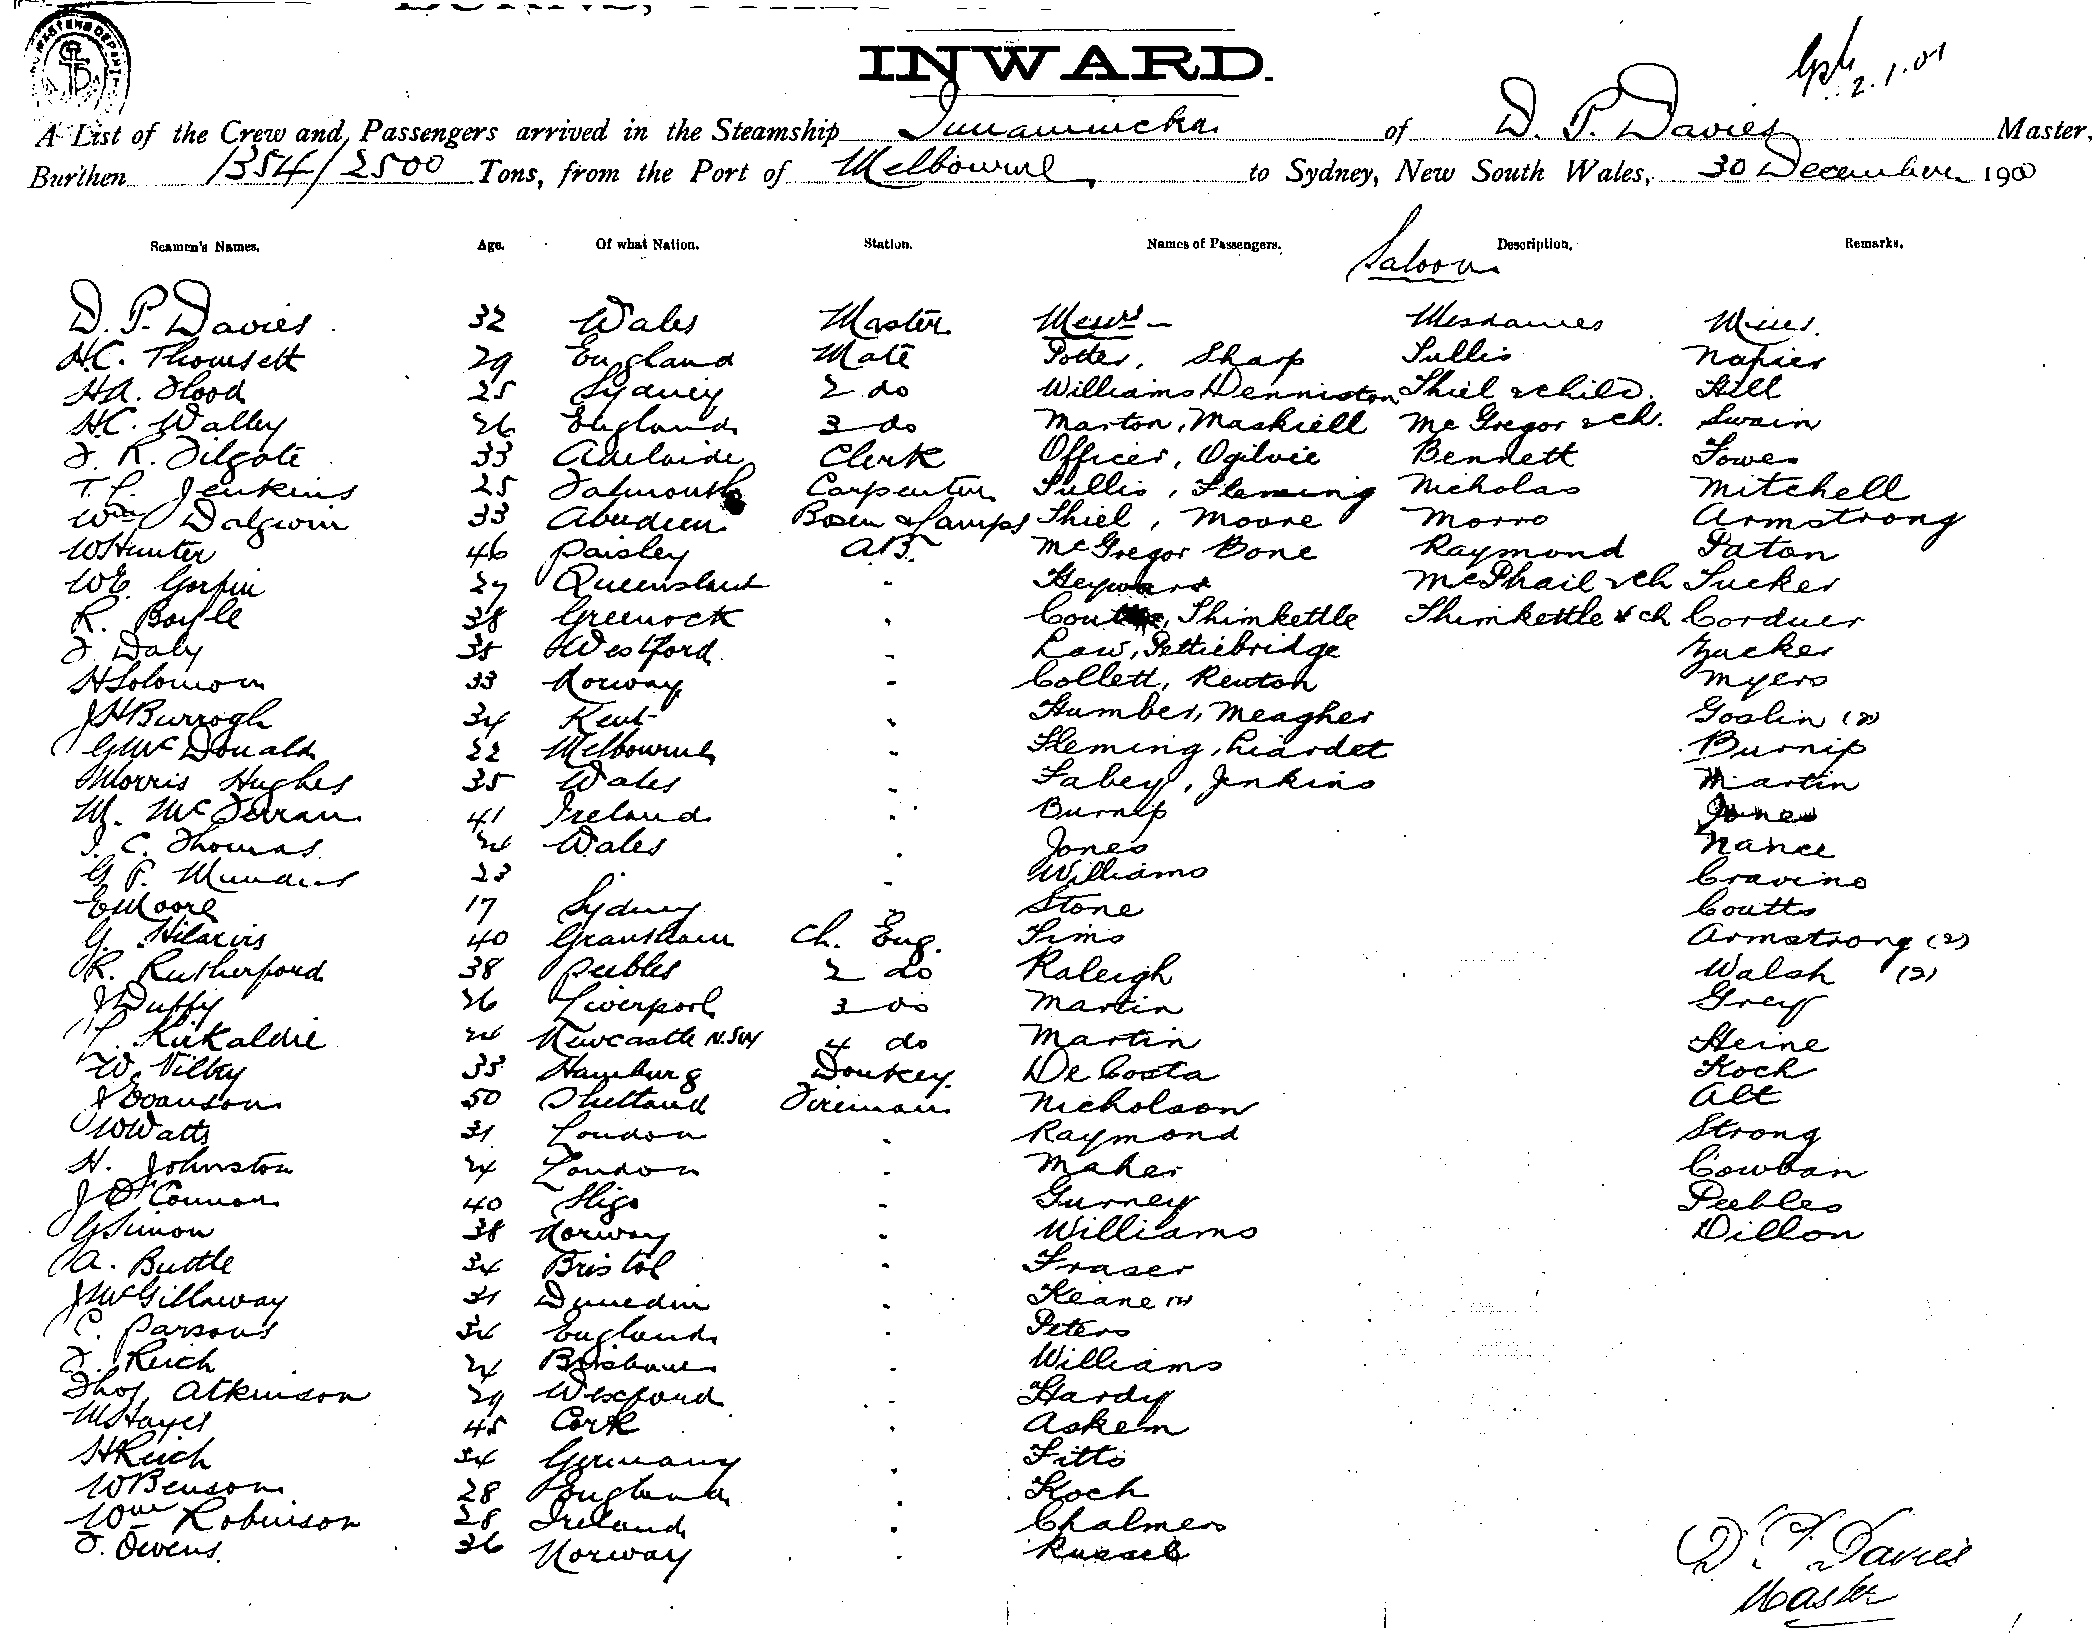 INWARD.
2.1.01
A List of the Crew and Passengers arrived in the Steamship Innamincka of D. P. Davies Master,
Burthen 1354/2500 Tons, from the Port of Melbourne to Sydney, New South Wales, 30 December 1900
Seamen's Names. Age. Of what Nation. Station. Names of Passengers. Description. Remarks.
Saloon
D. P. Davies 32 Wales Master Messrs Mesdames Misses
H.C. Thomsett 29 England Mate Potter, Sharp Tullis Napier
HA. Flood 25 Sydney 2 do Williams Denniston Thiel & child. Hill
H.C. Walley 26 England 3 do Marton, Maskiell McGregor & ch. Swain
F. R. Filgate 33 Adelaide Clerk Officer, Ogilvie Bennett Towes
T. P. Jenkins 25 Falmouth Carpenter Tullis, Fleming Nicholas Mitchell
Wm Dalgwin 33 Aberdeen Bosen & Lamps Thiel, Moore Morro Armstrong
W Hunter 46 Paisley A.B. McGregor Bone Raymond Paton
WE. 27 Queensland " Heyward McPhail & ch Tucker
R. Boyle 38 Greenock " Thimkettle Thimkettle & ch Corduer
F. Daly 35 Westford " Law, Pettiebridge Zucker
H Solomon 33 Norway " Collett, Renton Myers
JH Burrogh 34 Kent " Humber, Meagher Goslin (2)
G McDonald 22 Melbourne " Fleming, Liardet Burnip
Morris Hughes 35 Wales " Fabey, Jenkins Martin
M. McFerran 41 Ireland " Burnip Jones
J. C. Thomas 24 Wales " Jones Nance
G P. 23 " Williams Cravino
E Moore 17 Sydney " Stone Coutts
G. Hilarvis 40 Grantham Ch. Eng. Sims Armstrong (2)
R. Rutherford 38 Peebles 2 do Raleigh Walsh (2)
J Duffy 26 Liverpool 3 do Martin Grey
P. Kirkaldie 24 Newcastle N.SW 4 do Martin Heine
W. Vilby 33 Hamburg Donkey. De Costa Koch
J Evanson 50 Shetland Fireman Nicholson Alt
W Watts 31 London " Raymond Strong
H. Johnston 24 London " Maher Cowban
J O'Connor 40 Sligo " Gurney Peebles
G Simon 38 Norway " Williams Dillon
A. Buttle 34 Bristol " Fraser
J McGillaway 31 Dunedin " Keane (2)
C. Parsons 34 England " Peters
F. Reich 24 Brisbane " Williams
Thos Atkinson 29 Wexford " Hardy
M Hayes 45 Cork " Askem
H Reich 34 Germany " Fitts
W Benson 28 England " Koch
Wm Robinson 28 Ireland " Chalmers
F. Owens. 36 Norway " Russell
D. P. Davies
Master